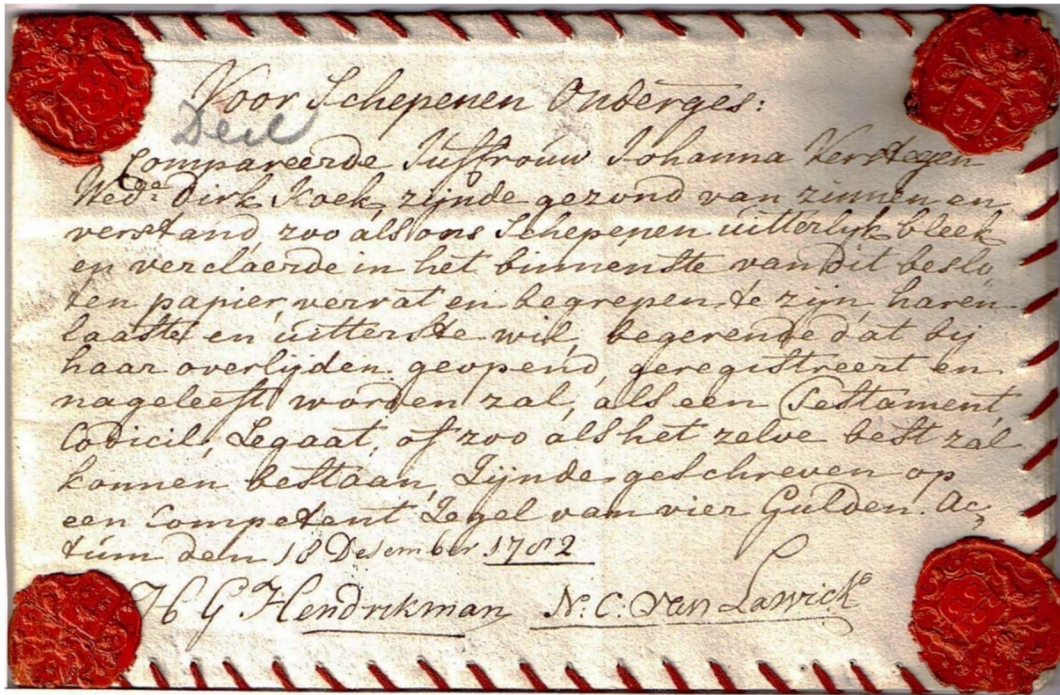 Voor Schepenen Onderges:
Deil
Compareerde Juffrouw Johanna Verstegen
Wed.ᵉ Dirk Koek, zijnde gezond van zinnen en
verstand, zoo als ons Schepenen uitterlyk bleek,
en verclaerde in het binnenste van dit beslo
ten papier, vervat en begrepen te zijn, haren
laaste en uitterste wil, begerende dat bij
haar overlijden geopend, geregistreert en
nageleeft worden zal, als een Testament,
Codicil, Legaat, of zoo als het zelve best zal
konnen bestaan, Zijnde geschreven op
een Competent Zegel van vier Gulden. Ac,
tum den 18 Desember 1782
H G Hendrikman N: C: Van Lawick